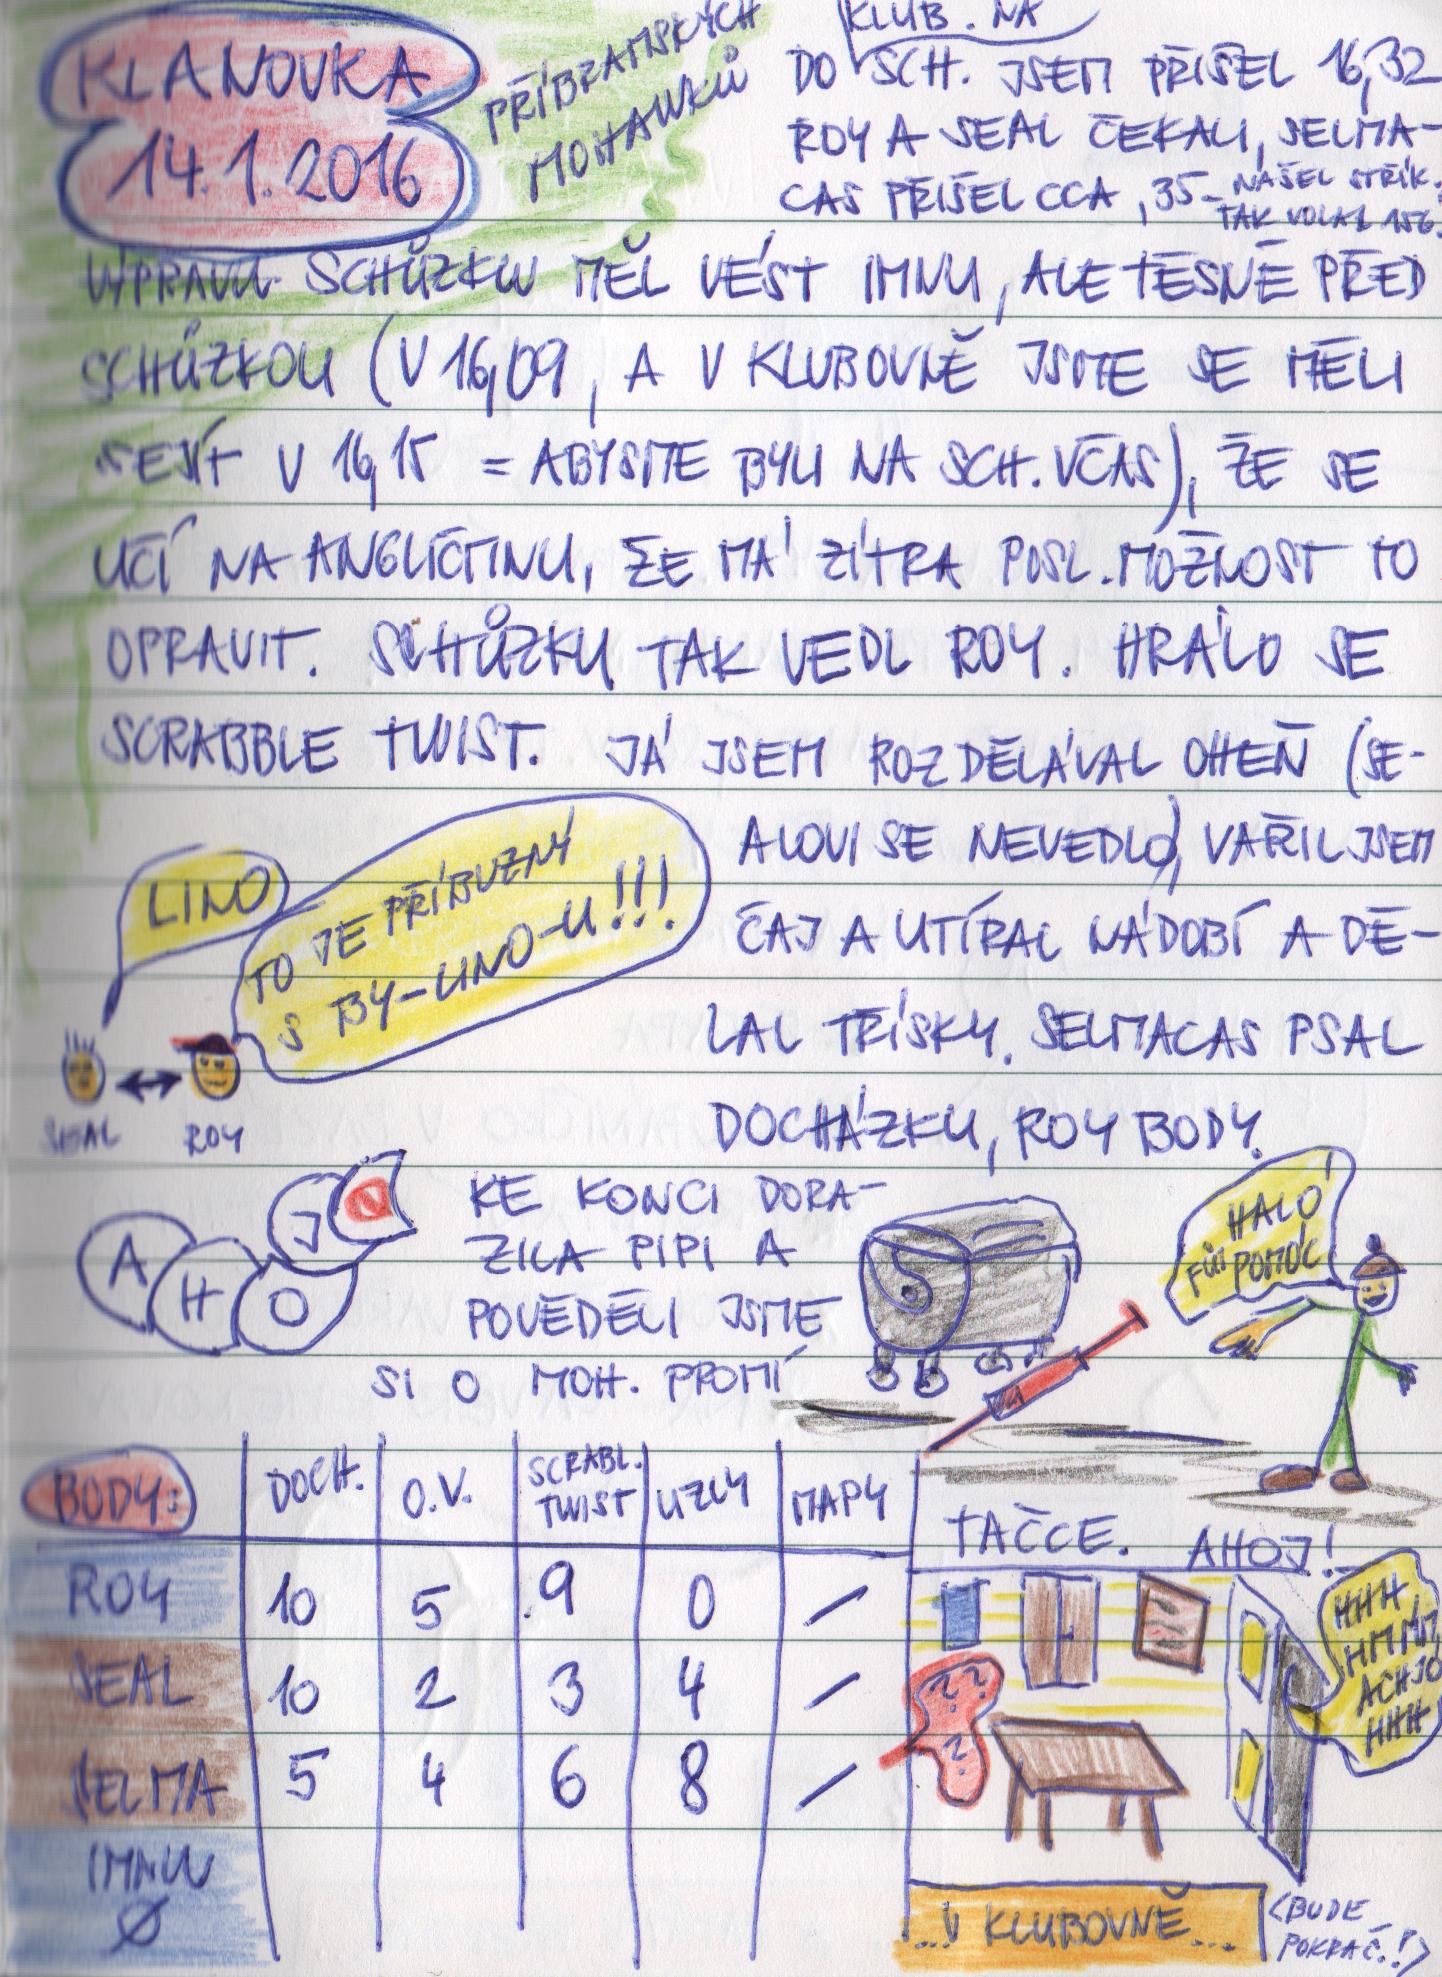 KLANOVKA
14.1.2016
PŘÍBRAMSKÝCH
MOHAWKŮ
KLUB. NA
DO SCH. JSEM PŘIŠEL 16,32
ROY A SEAL ČEKALI, SELMA-
CAS PŘIŠEL CCA ,35- NAŠEL STŘÍK.
TAK VOLAL 156.
VÝPRAVU SCHŮZKU MĚL VÉST IMNU, ALE TĚSNĚ PŘED
SCHŮZKOU (V 16,09, A V KLUBOVNĚ JSME SE MĚLI
SEJÍT V 16,15 = ABYSME BYLI NA SCH. VČAS), ŽE SE
UČÍ NA ANGLIČTINU, ŽE MÁ ZÍTRA POSL. MOŽNOST TO
OPRAVIT. SCHŮZKU TAK VEDL ROY. HRÁLO SE
SCRABBLE TWIST. JÁ JSEM ROZDĚLÁVAL OHEŇ (SE-
ALOVI SE NEVEDLO), VAŘIL JSEM
ČAJ A UTÍRAL NÁDOBÍ A DĚ-
LAL TŘÍSKY. SELMACAS PSAL
DOCHÁZKU, ROY BODY.
LINO
TO JE PŘÍBUZNÝ
S BY-LINO-U!!!
SEAL
ROY
A H O J
KE KONCI DORA-
ZILA PIPI A
POVĚDĚLI JSME
SI O MOH. PROMÍ
HALÓ
FŮŮ POMOC
TAČCE. AHOJ!
BODY: DOCH. O.V. SCRABL. TWIST UZLY MAPY
ROY 10 5 9 0 /
SEAL 10 2 3 4 /
SELMA 5 4 6 8 /
IMNU
Ø
? ?
?
HHH
HMMM
ACHJO
HHH
...V KLUBOVNĚ...
<BUDE
POKRAČ.!>